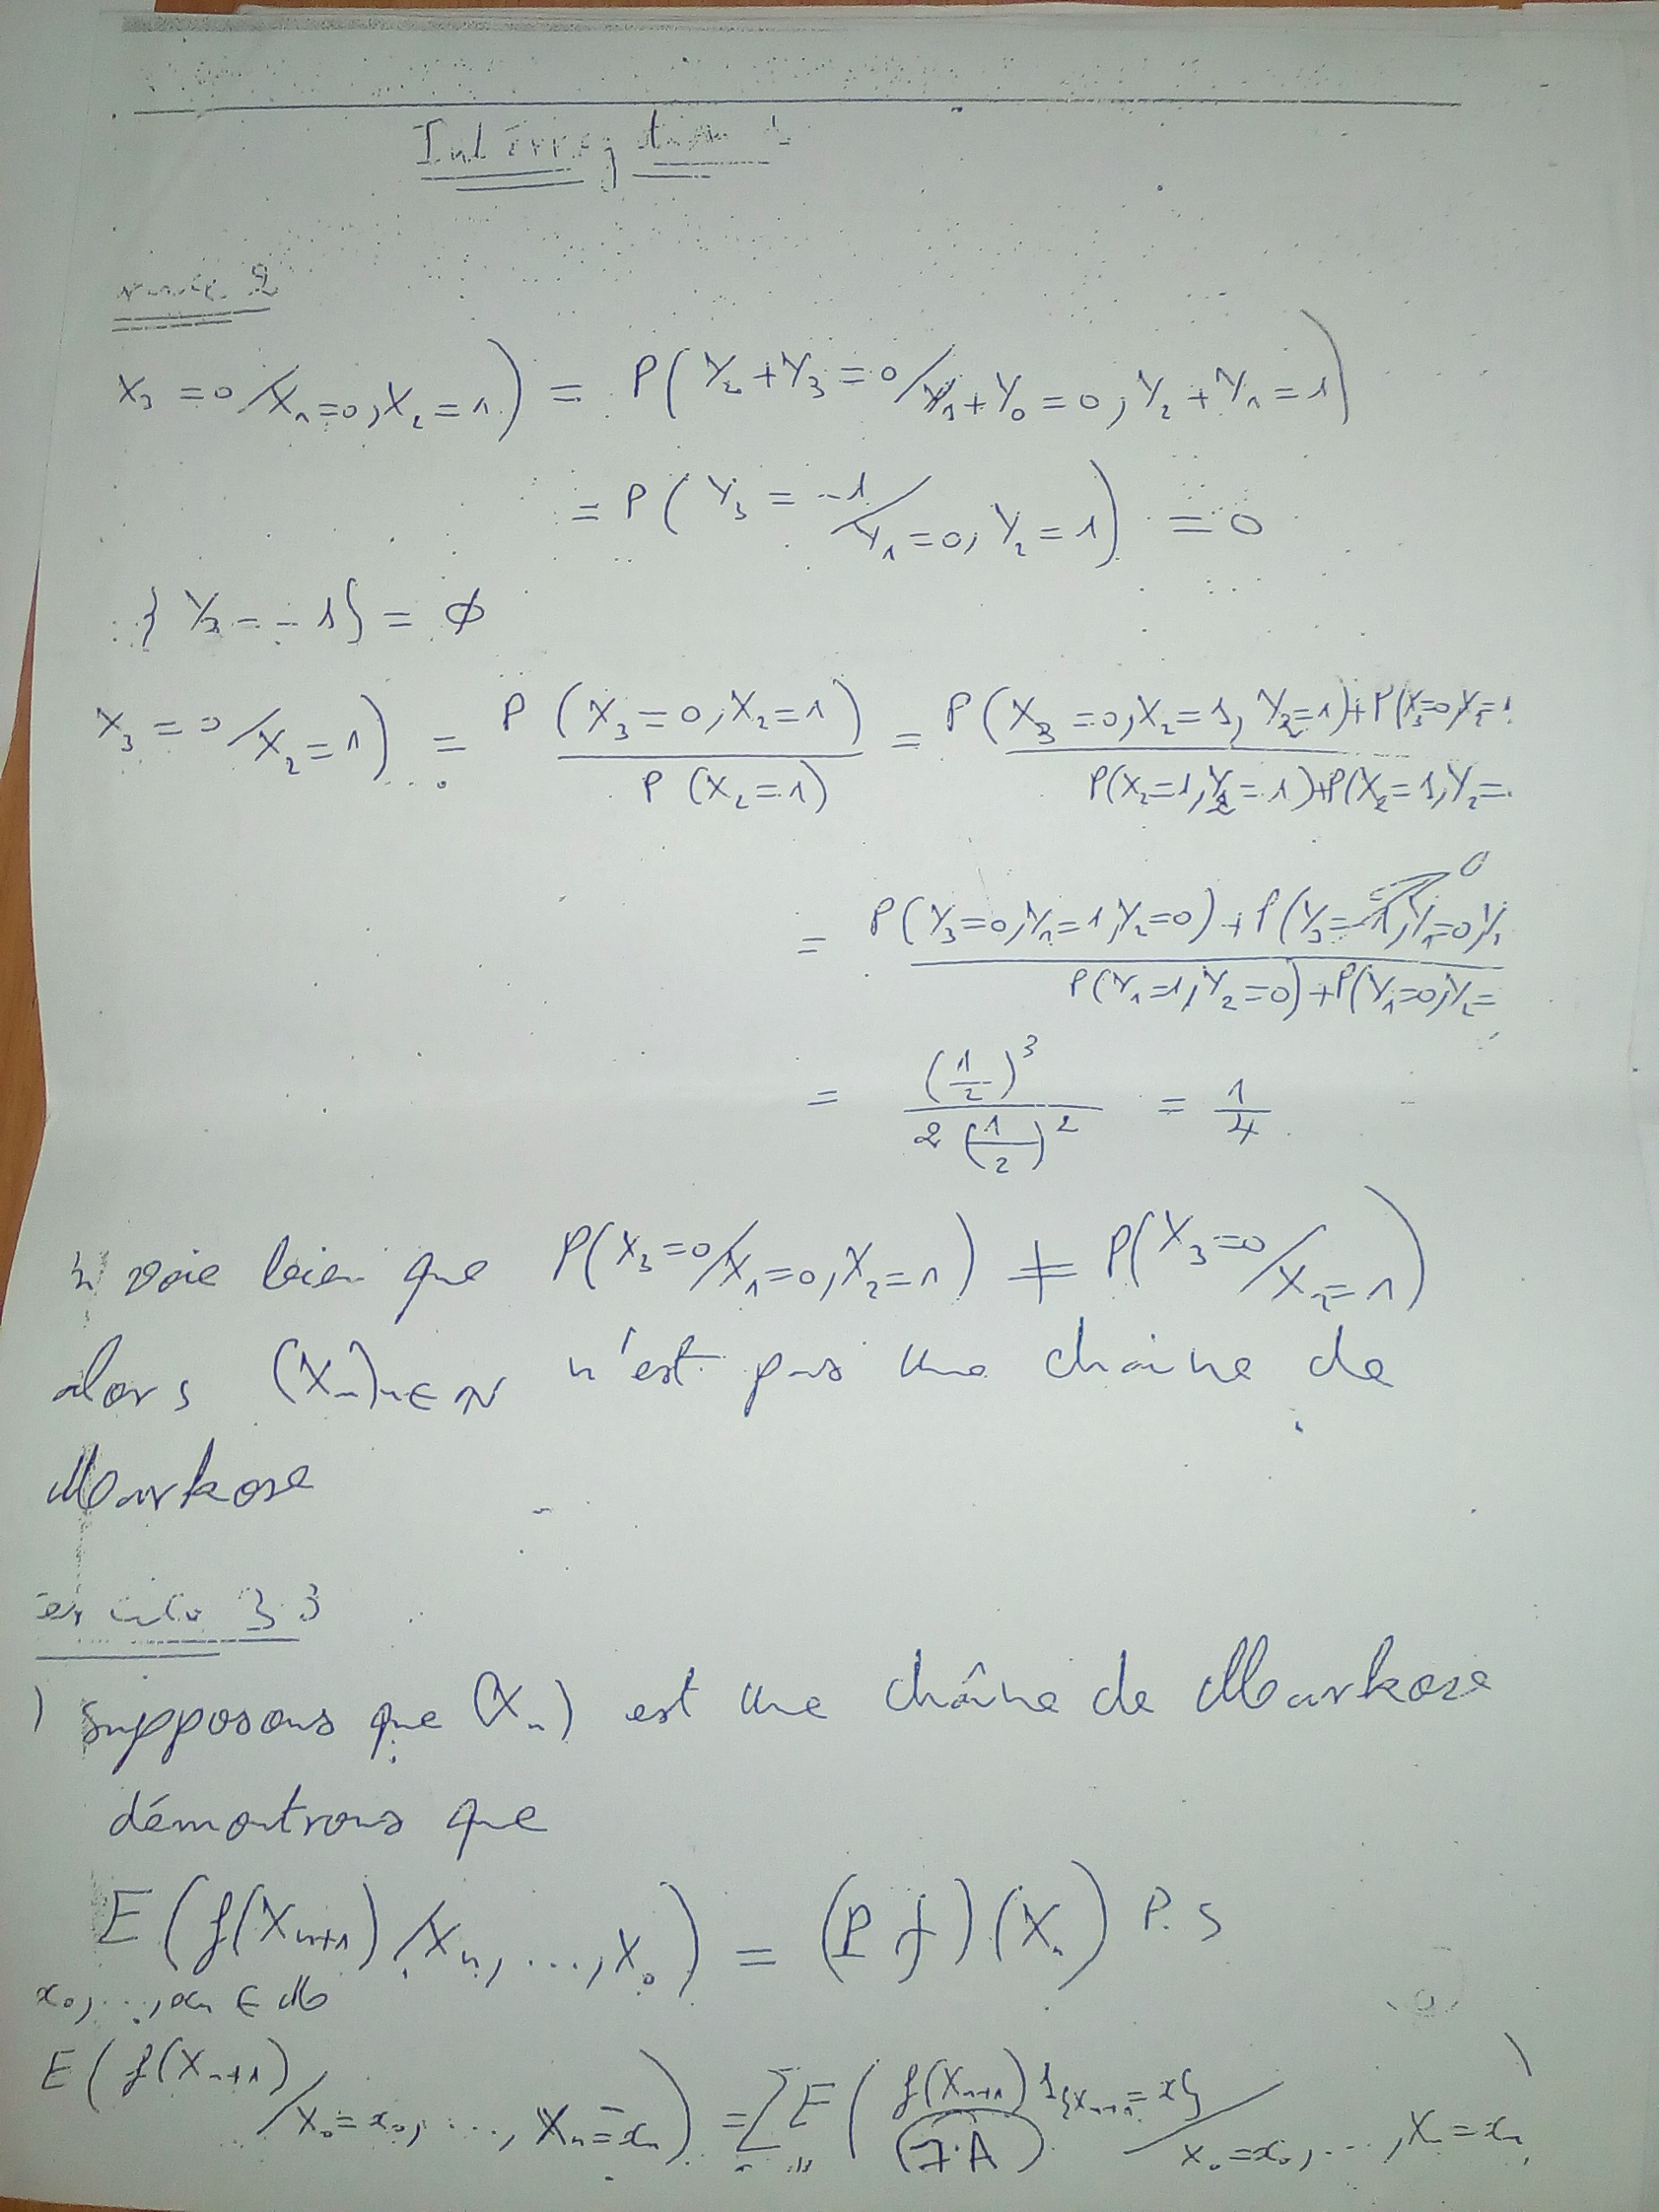 Intérrogation 1
exercice 2
X₃ = 0 / X₁ = 0, X₂ = 1) = P(Y₂ + Y₃ = 0 / Y₁ + Y₀ = 0, Y₂ + Y₁ = 1)
= P(Y₃ = -1 / Y₁ = 0, Y₂ = 1) = 0
{Y₃ = -1} = ∅
X₃ = 0 / X₂ = 1) = P(X₃ = 0, X₂ = 1) / P(X₂ = 1) = P(X₃ = 0, X₂ = 1, Y₂ = 1) + P(X₃ = 0, X₂ = 1 / P(X₂ = 1, Y₂ = 1) + P(X₂ = 1, Y₂ =
= P(Y₃ = 0, Y₁ = 1, Y₂ = 0) + P(Y₃ = -1, Y₁ = 0, Y₂ → 0 / P(Y₁ = 1, Y₂ = 0) + P(Y₁ = 0, Y₂ =
= (1/2)³ / 2(1/2)² = 1/4
voie bien que P(X₃ = 0 / X₁ = 0, X₂ = 1) ≠ P(X₃ = 0 / X₂ = 1)
alors (Xₙ)n∈ℕ n'est pas une chaine de
Markove
3.3
) supposons que (Xₙ) est une chaîne de Markove
démontrons que
E(f(Xₙ₊₁) / Xₙ, ..., X₀) = (Pf)(Xₙ) P.S
x₀, ..., xₙ ∈ M
E(f(Xₙ₊₁) / X₀ = x₀, ..., Xₙ = xₙ) = Σ E(f(Xₙ₊₁) 1{Xₙ₊₁ = x} / X₀ = x₀, ..., Xₙ = xₙ)
(7.A)